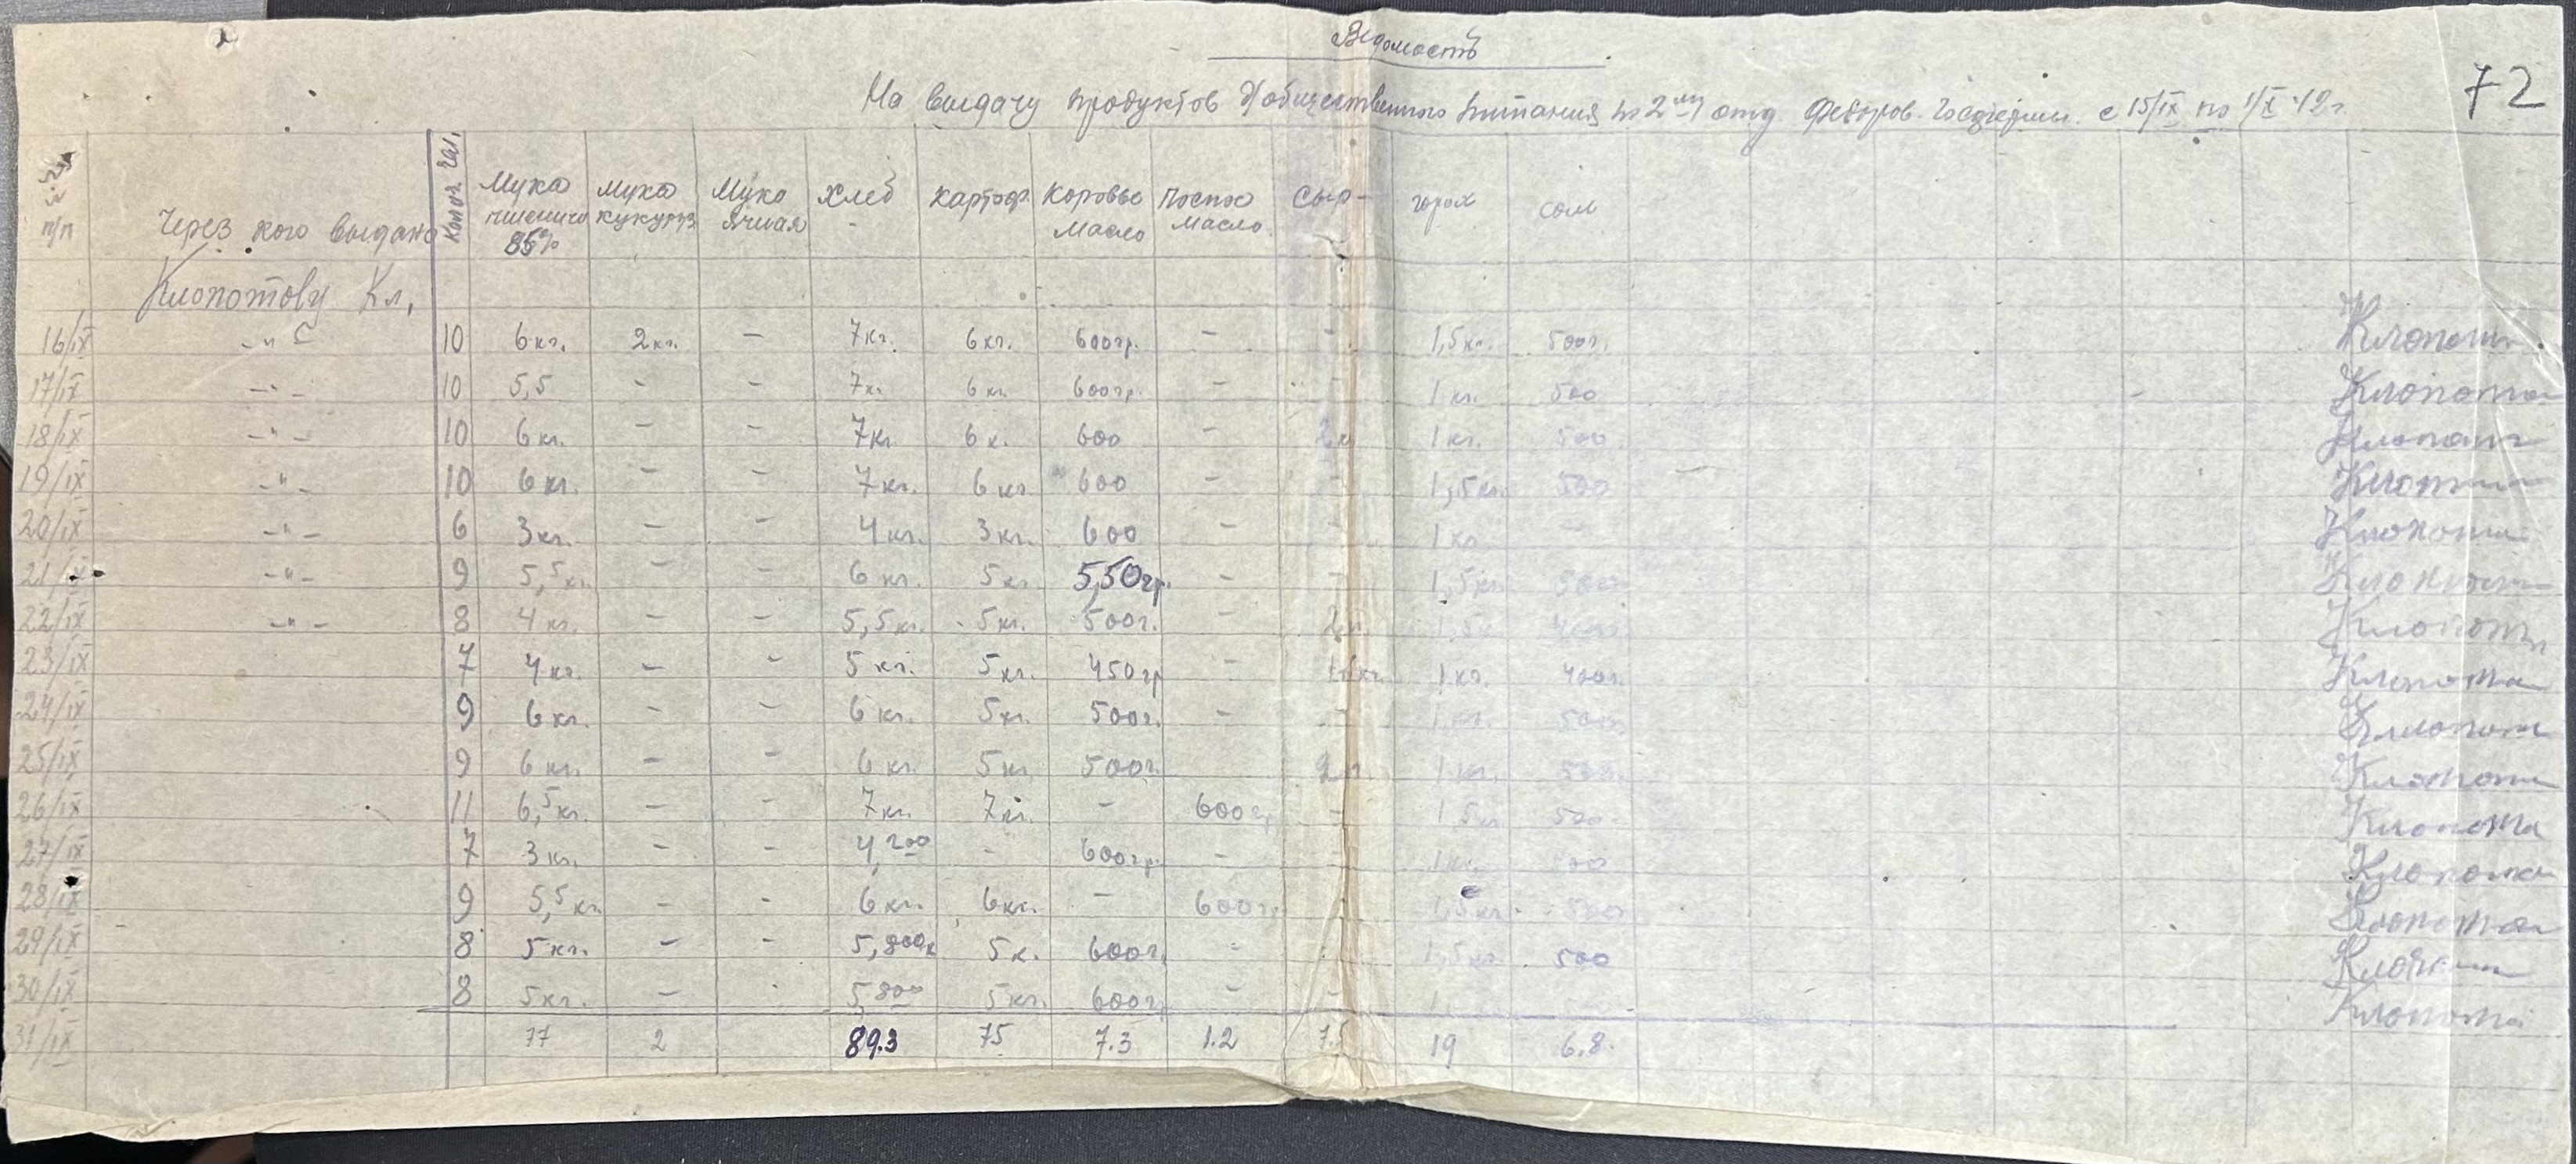 Ведомость
72
На выдачу продуктов общественного питания по 2му отд с 15/IX по 1/X 42 г.
п/п Через кого выдано Колич. чел. Мука пшенич 85% Мука кукуруз Мука Ячная Хлеб Картоф. Коровье масло Постное масло Сыр горох соль
Клопотову Кл.
16/IX -"- 10 6 кг. 2 кг. - 7 кг. 6 кг. 600 гр. - - 1,5 кг. 500 г.
17/IX -"- 10 5,5 - - 7 кг 6 кг. 600 гр. - - 1 кг. 500
18/IX -"- 10 6 кг. - - 7 кг 6 к. 600 - 2 к 1 кг. 500
19/IX -"- 10 6 кг. - - 7 кг. 6 кг 600 - - 1,5 кг. 500
20/IX -"- 6 3 кг. - - 4 кг. 3 кг. 600 - - 1 кг -
21/IX -"- 9 5,5 кг. - - 6 кг. 5 кг 5,50 гр. - - 1,5 кг. 500
22/IX -"- 8 4 кг. - - 5,5 кг. 5 кг. 500 г. - 2 1,5 400
23/IX 7 4 кг. - - 5 кг. 5 кг. 450 гр - 1 кг. 400 г.
24/IX 9 6 кг. - - 6 кг. 5 кг. 500 г. - - 1 кг. 500
25/IX 9 6 кг. - - 6 кг. 5 кг 500 г. 2 1 кг. 500
26/IX 11 6,5 кг. - - 7 кг. 7 кг. - 600 г - 1,5 кг 500
27/IX 7 3 кг. - - 4,200 - 600 гр. - - 1 кг. 500
28/IX 9 5,5 кг. - - 6 кг. 6 кг. - 600 г - 1,5 кг. 500
29/IX 8 5 кг. - - 5,800 к 5 к. 600 г. - - 1,5 кг. 500
30/IX 8 5 кг. - - 5,800 5 кг. 600 гр - - 1
31/IX 77 2 89.3 75 7.3 1.2 7.5 19 6.8.